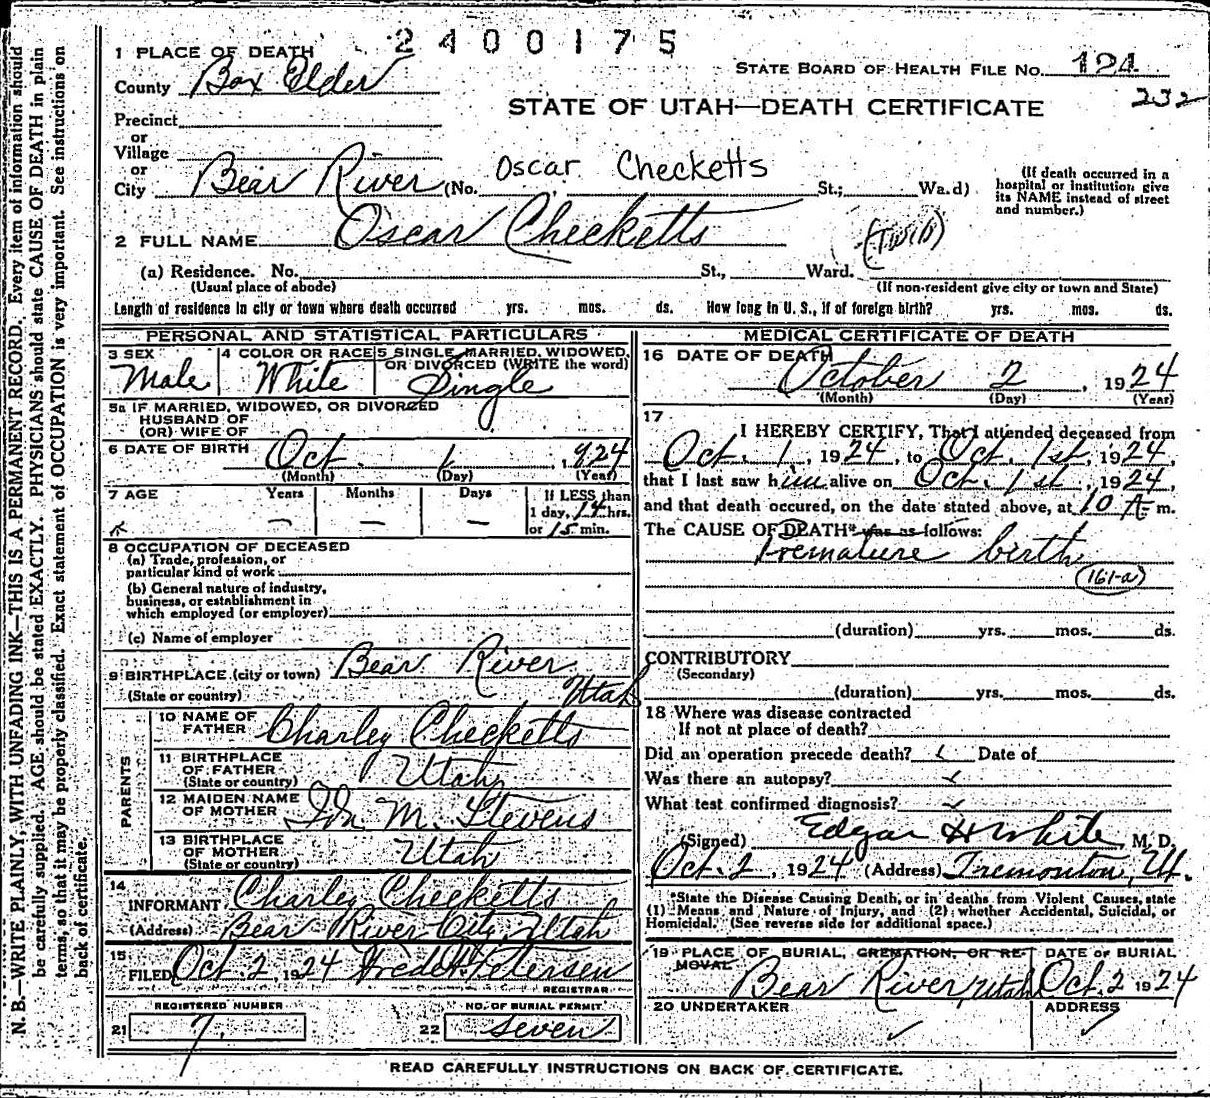 2400175
1 PLACE OF DEATH
STATE BOARD OF HEALTH FILE NO. 124
County Box Elder
232
STATE OF UTAH—DEATH CERTIFICATE
Precinct
or
Village
or
City Bear River (No. Oscar Checketts St.; Wa.d)
(If death occurred in a hospital or institution give its NAME instead of street and number.)
2 FULL NAME Oscar Checketts (Twin)
(a) Residence. No. St., Ward.
(Usual place of abode) (If non-resident give city or town and State)
Length of residence in city or town where death occurred yrs. mos. ds. How long in U. S., if of foreign birth? yrs. mos. ds.
PERSONAL AND STATISTICAL PARTICULARS
3 SEX Male
4 COLOR OR RACE White
5 SINGLE, MARRIED, WIDOWED, OR DIVORCED (WRITE the word) Single
5a IF MARRIED, WIDOWED, OR DIVORCED
HUSBAND OF
(OR) WIFE OF
6 DATE OF BIRTH Oct. 1, 1924
(Month) (Day) (Year)
7 AGE Years — Months — Days —
If LESS than
1 day, 14 hrs.
or 15 min.
8 OCCUPATION OF DECEASED
(a) Trade, profession, or
particular kind of work
(b) General nature of industry,
business, or establishment in
which employed (or employer)
(c) Name of employer
9 BIRTHPLACE (city or town) Bear River
(State or country) Utah
PARENTS
10 NAME OF FATHER Charley Checketts
11 BIRTHPLACE OF FATHER (State or country) Utah
12 MAIDEN NAME OF MOTHER Ida M. Stevens
13 BIRTHPLACE OF MOTHER (State or country) Utah
14
INFORMANT Charley Checketts
(Address) Bear River City, Utah
15
FILED Oct. 2, 1924 Petersen
REGISTRAR
REGISTERED NUMBER
21 7
NO. OF BURIAL PERMIT
22 seven
MEDICAL CERTIFICATE OF DEATH
16 DATE OF DEATH
October 2, 1924
(Month) (Day) (Year)
17
I HEREBY CERTIFY, That I attended deceased from
Oct. 1, 1924, to Oct. 1st, 1924,
that I last saw him alive on Oct. 1st, 1924,
and that death occured, on the date stated above, at 10 A m.
The CAUSE OF DEATH* was as follows:
Premature birth
(161-a)
(duration) yrs. mos. ds.
CONTRIBUTORY
(Secondary)
(duration) yrs. mos. ds.
18 Where was disease contracted
If not at place of death?
Did an operation precede death? Date of
Was there an autopsy?
What test confirmed diagnosis?
(Signed) Edgar H White M. D.
Oct. 2, 1924 (Address) Tremonton, Ut.
*State the Disease Causing Death, or in deaths from Violent Causes, state
(1) Means and Nature of Injury, and (2) whether Accidental, Suicidal, or
Homicidal. (See reverse side for additional space.)
19 PLACE OF BURIAL, CREMATION, OR REMOVAL
Bear River, Utah
DATE OF BURIAL
Oct. 2 1924
20 UNDERTAKER
ADDRESS
READ CAREFULLY INSTRUCTIONS ON BACK OF CERTIFICATE.
N. B.—WRITE PLAINLY, WITH UNFADING INK—THIS IS A PERMANENT RECORD. Every item of information should
be carefully supplied. AGE should be stated EXACTLY. PHYSICIANS should state CAUSE OF DEATH in plain
terms, so that it may be properly classified. Exact statement of OCCUPATION is very important. See instructions on
back of certificate.